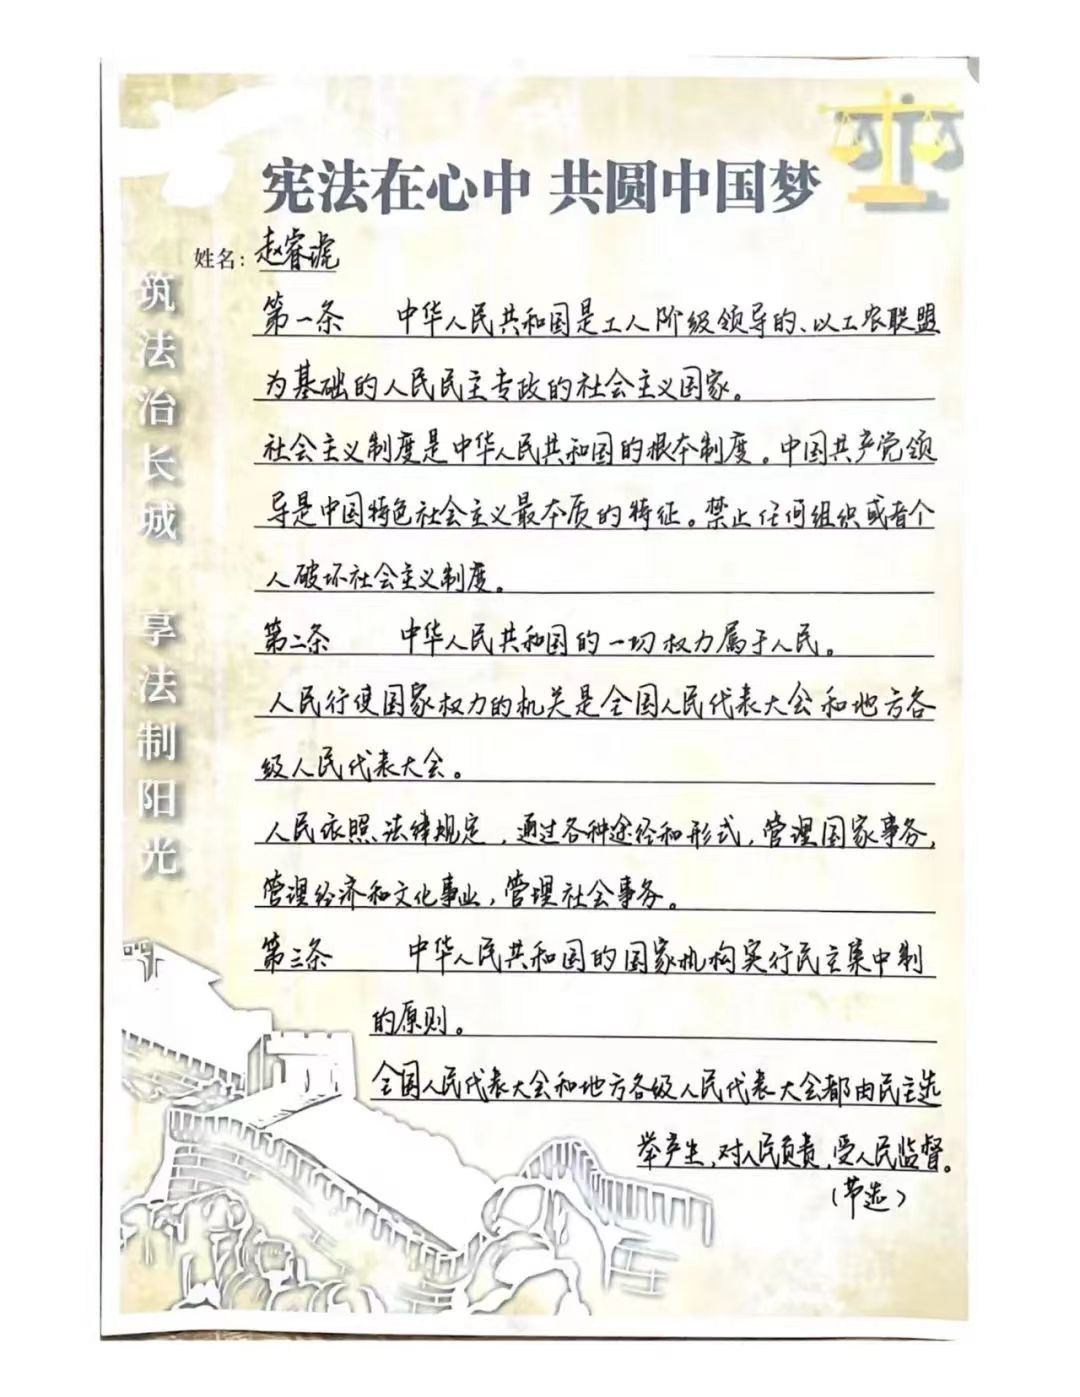 宪法在心中 共圆中国梦
姓名：赵睿琥
筑法治长城 享法制阳光
第一条 中华人民共和国是工人阶级领导的、以工农联盟
为基础的人民民主专政的社会主义国家。
社会主义制度是中华人民共和国的根本制度。中国共产党领
导是中国特色社会主义最本质的特征。禁止任何组织或者个
人破坏社会主义制度。
第二条 中华人民共和国的一切权力属于人民。
人民行使国家权力的机关是全国人民代表大会和地方各
级人民代表大会。
人民依照法律规定，通过各种途径和形式，管理国家事务，
管理经济和文化事业，管理社会事务。
第三条 中华人民共和国的国家机构实行民主集中制
的原则。
全国人民代表大会和地方各级人民代表大会都由民主选
举产生，对人民负责，受人民监督。
（节选）